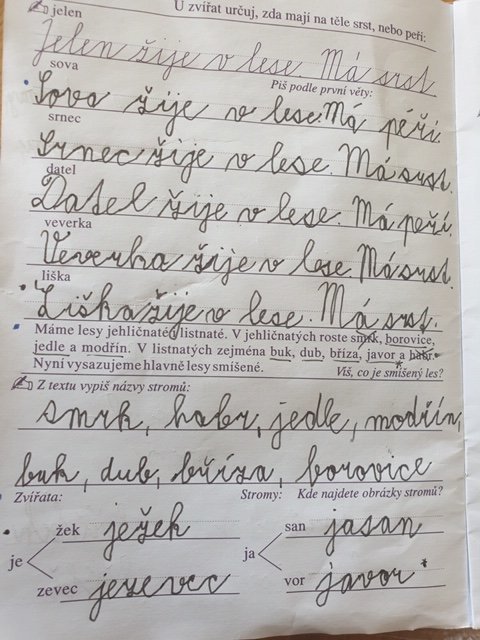 jelen U zvířat určuj, zda mají na těle srst, nebo peří:
Jelen žije v lese. Má srst.
sova Piš podle první věty:
Sova žije v lese. Má péří.
srnec
Srnec žije v lese. Má srst.
datel
Datel žije v lese. Má peří.
veverka
Veverka žije v lese. Má srst.
liška
Liška žije v lese. Má srst.
Máme lesy jehličnaté a listnaté. V jehličnatých roste smrk, borovice,
jedle a modřín. V listnatých zejména buk, dub, bříza, javor a habr.
Nyní vysazujeme hlavně lesy smíšené. Víš, co je smíšený les?
Z textu vypiš názvy stromů:
smrk, habr, jedle, modřín,
buk, dub, bříza, borovice
Zvířata: Stromy: Kde najdete obrázky stromů?
žek ježek san jasan
je ja
zevec jezevec vor javor